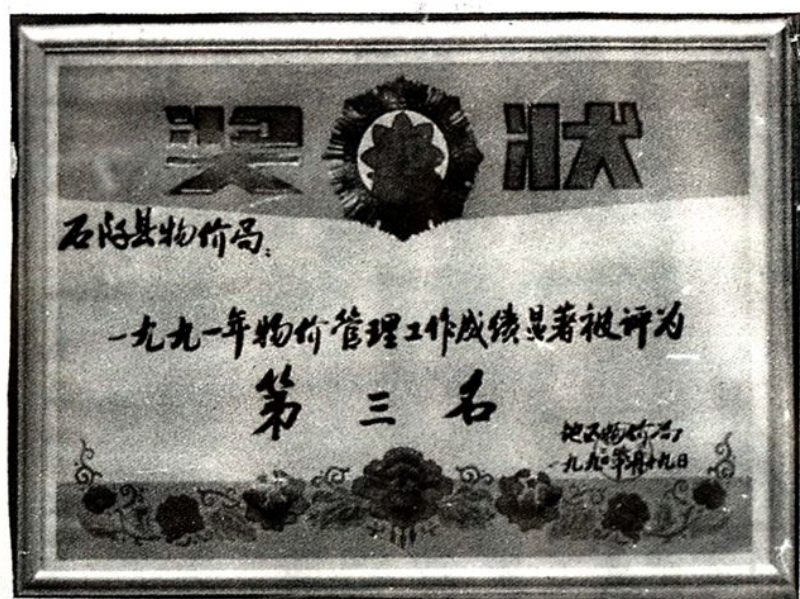 奖状
石阡县物价局：
一九九一年物价管理工作成绩显著被评为
第三名
地区物价局
一九九二年 月十九日